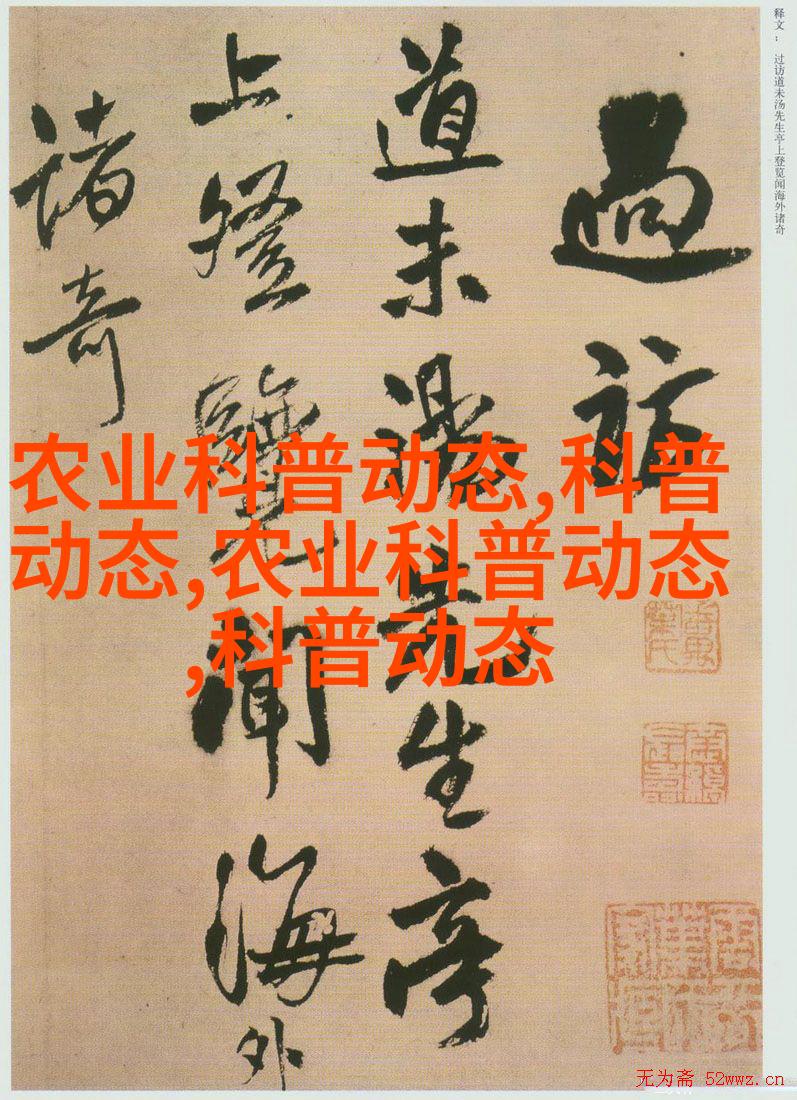 释文： 过访道未汤先生亭上登览闻海外诸奇
過訪
道未湯先生亭
上登覽聞海外
諸奇
农业科普动态,科普
动态,农业科普动态
,科普动态
无为斋 52wwz.cn